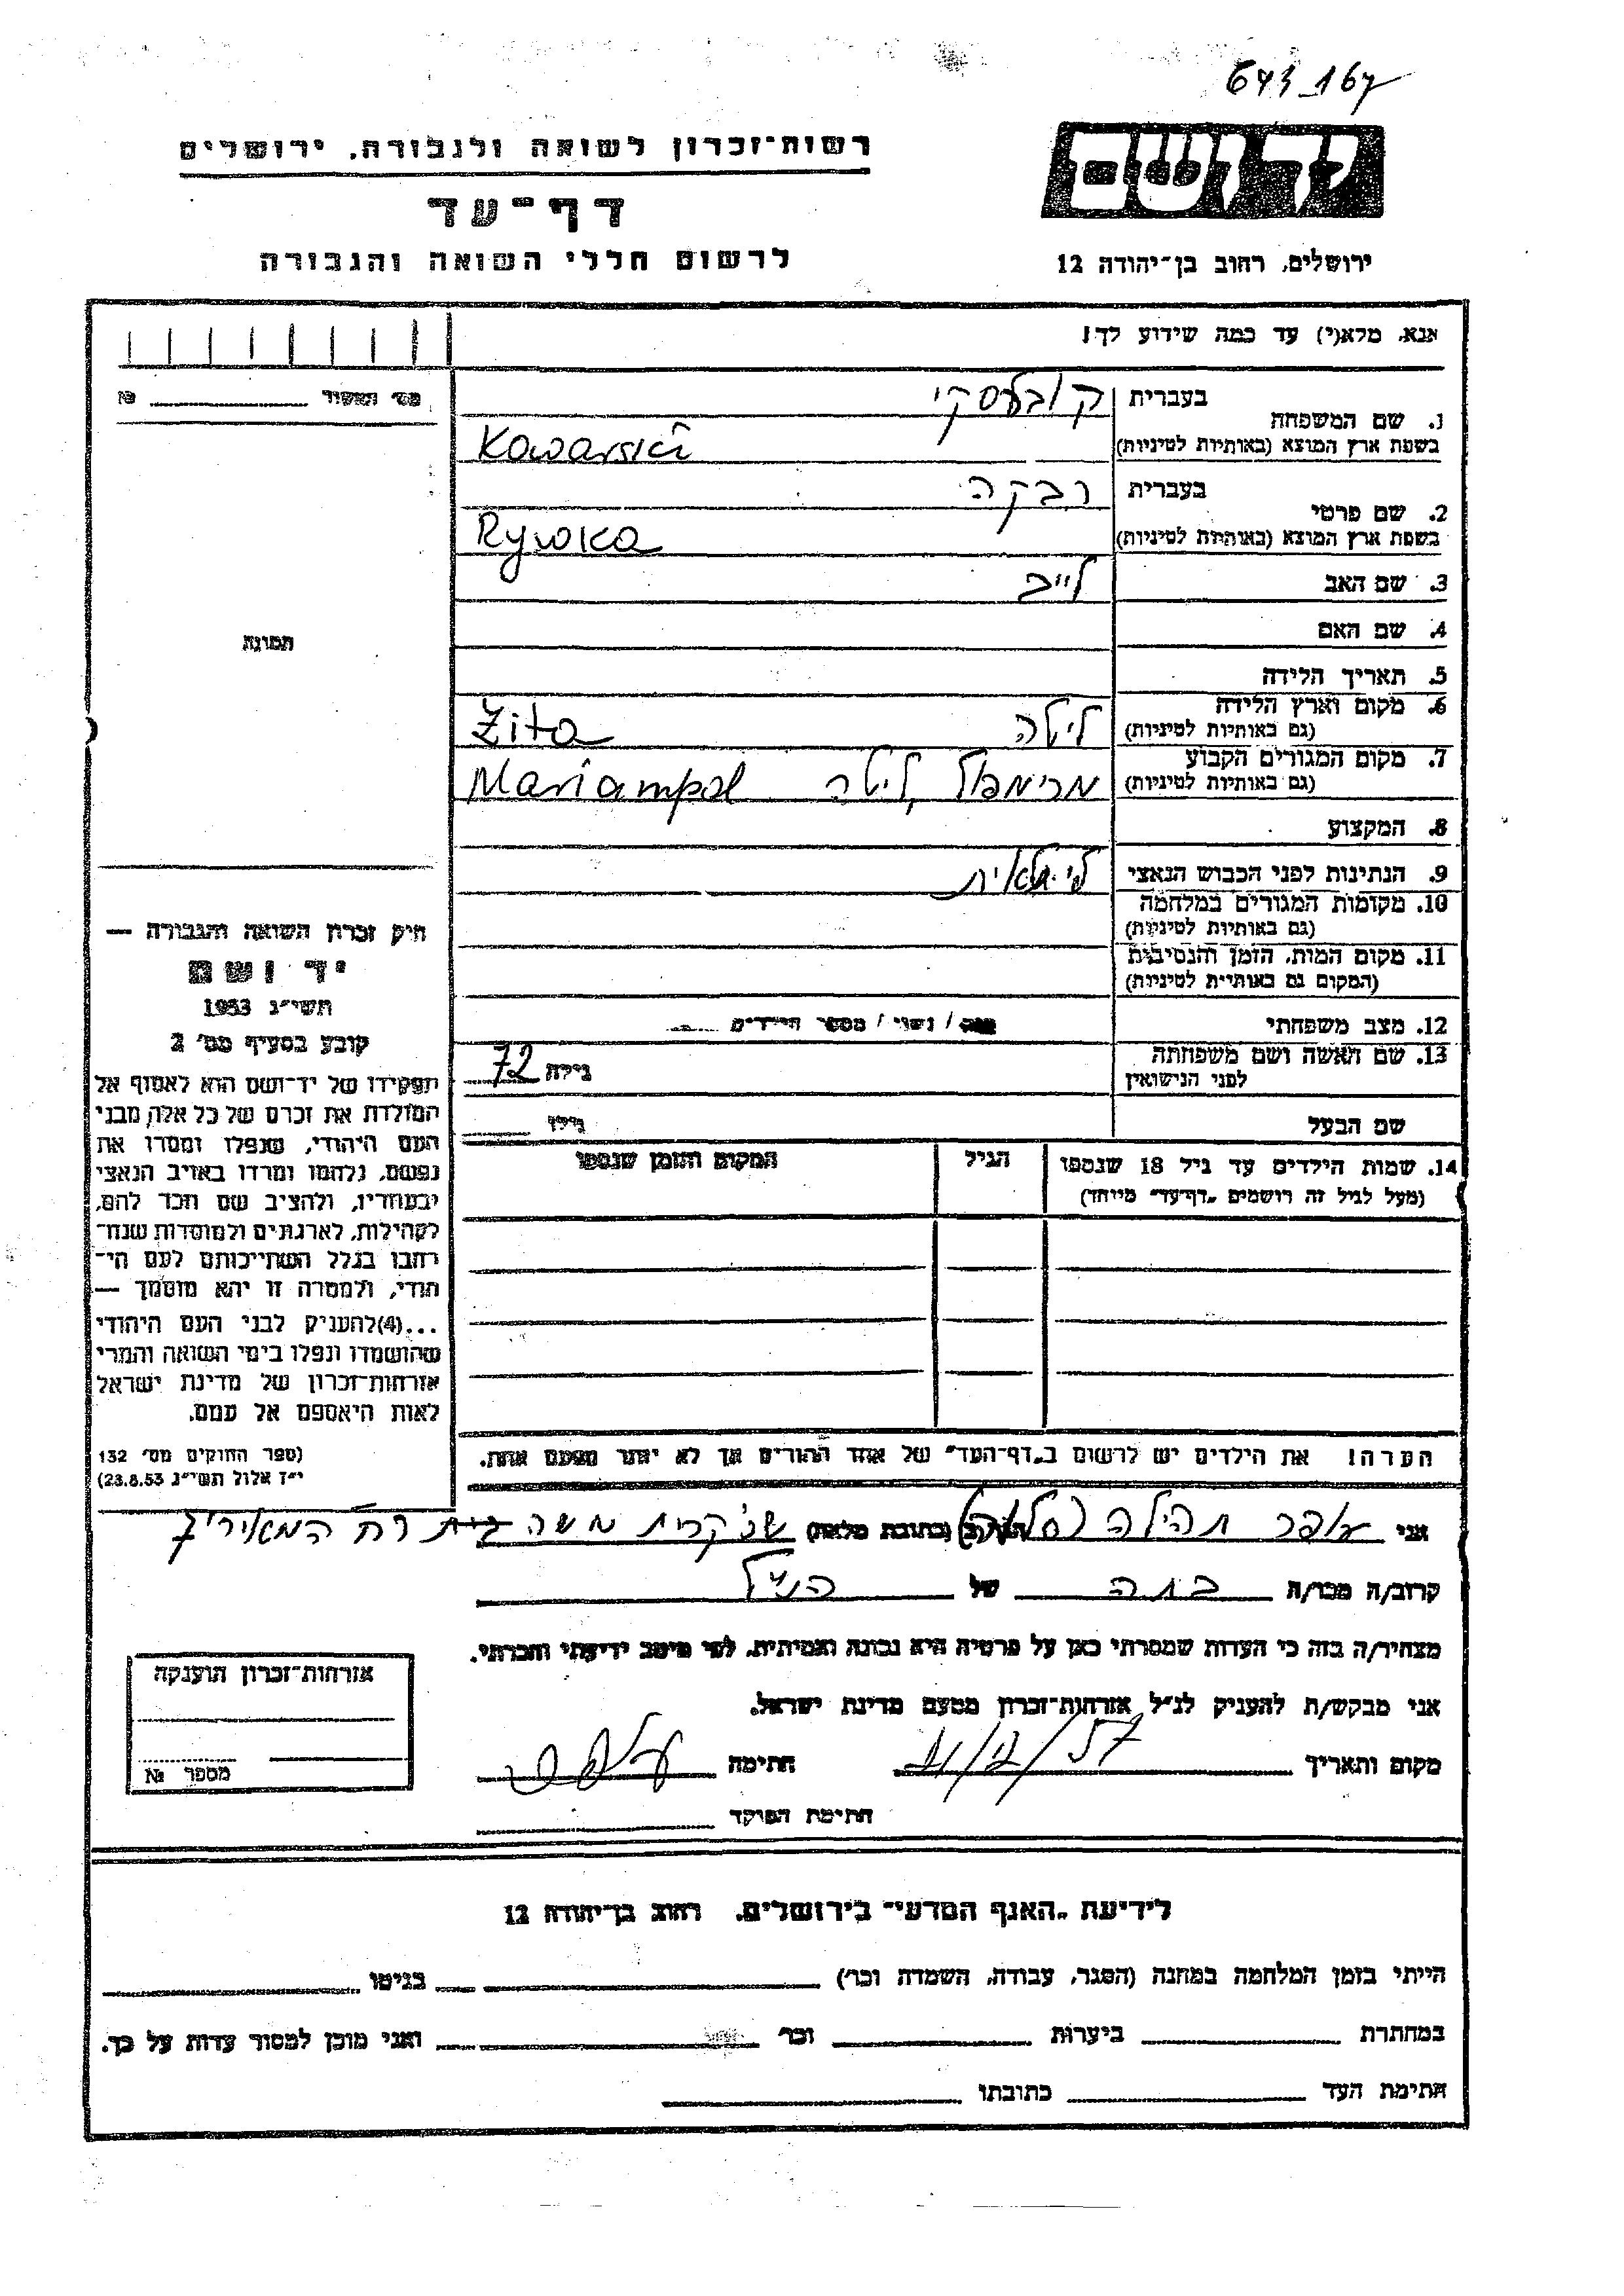 643_167
רשות-זכרון לשואה ולגבורה, ירושלים
דף-עד
לרשום חללי השואה והגבורה
יד ושם
ירושלים, רחוב בן-יהודה 12
אנא, מלא(י) עד כמה שידוע לך!
מס' האשור № 
1. שם המשפחה בעברית קובעסקי
בשפת ארץ המוצא (באותיות לטיניות) Kowarski
2. שם פרטי בעברית רבקה
בשפת ארץ המוצא (באותיות לטיניות) Rywka
3. שם האב לייב
4. שם האם
5. תאריך הלידה
6. מקום וארץ הלידה
(גם באותיות לטיניות) ליטה Lita
7. מקום המגורים הקבוע
(גם באותיות לטיניות) מרימפול, ליטה Mariampol
8. המקצוע
9. הנתינות לפני הכבוש הנאצי ליטאית
10. מקומות המגורים במלחמה
(גם באותיות לטיניות)
11. מקום המות, הזמן והנסיבות
(המקום גם באותיות לטיניות)
12. מצב משפחתי / נשוי / מספר הילדים
13. שם האשה ושם משפחתה
לפני הנישואין גילה 72
שם הבעל גילו
14. שמות הילדים עד גיל 18 שנספו
(מעל לגיל זה רושמים "דף-עד" מיוחד)
הגיל
המקום והזמן שנספו
הערה! את הילדים יש לרשום ב"דף-העד" של אחד ההורים אך לא יותר מפעם אחת.
תמונה
חוק זכרון השואה והגבורה —
יד ושם
תשי"ג 1953
קובע בסעיף מס' 2
תפקידו של יד-ושם הוא לאסוף אל
המולדת את זכרם של כל אלה מבני
העם היהודי, שנפלו ומסרו את
נפשם, נלחמו ומרדו באויב הנאצי
ובעוזריו, ולהציב שם וזכר להם,
לקהילות, לארגונים ולמוסדות שנח-
רבו בגלל השתייכותם לעם הי-
הודי, ולמטרה זו יהא מוסמך —
...(4)להעניק לבני העם היהודי
שהושמדו ונפלו בימי השואה והמרי
אזרחות-זכרון של מדינת ישראל
לאות היאספם אל עמם.
(ספר החוקים מס' 132
י"ז אלול תשי"ג 23.8.53)
אני עופר תהילה הגר ב (כתובת מלאה) שכ' קרית משה רח המאירי
קרוב/ה מכר/ה בתה של הנ"ל
מצהיר/ה בזה כי העדות שמסרתי כאן על פרטיה היא נכונה ואמיתית, לפי מיטב ידיעתי והכרתי.
אני מבקש/ת להעניק לנ"ל אזרחות-זכרון מטעם מדינת ישראל.
מקום ותאריך 57 חתימה
חתימת הפוקד
אזרחות-זכרון הוענקה
מספר №
לידיעת "האגף המדעי" בירושלים, רחוב בן-יהודה 12
הייתי בזמן המלחמה במחנה (הסגר, עבודה, השמדה וכו') בגיטו
במחתרת ביערות וכו' ואני מוכן למסור עדות על כך.
חתימת העד כתובתו